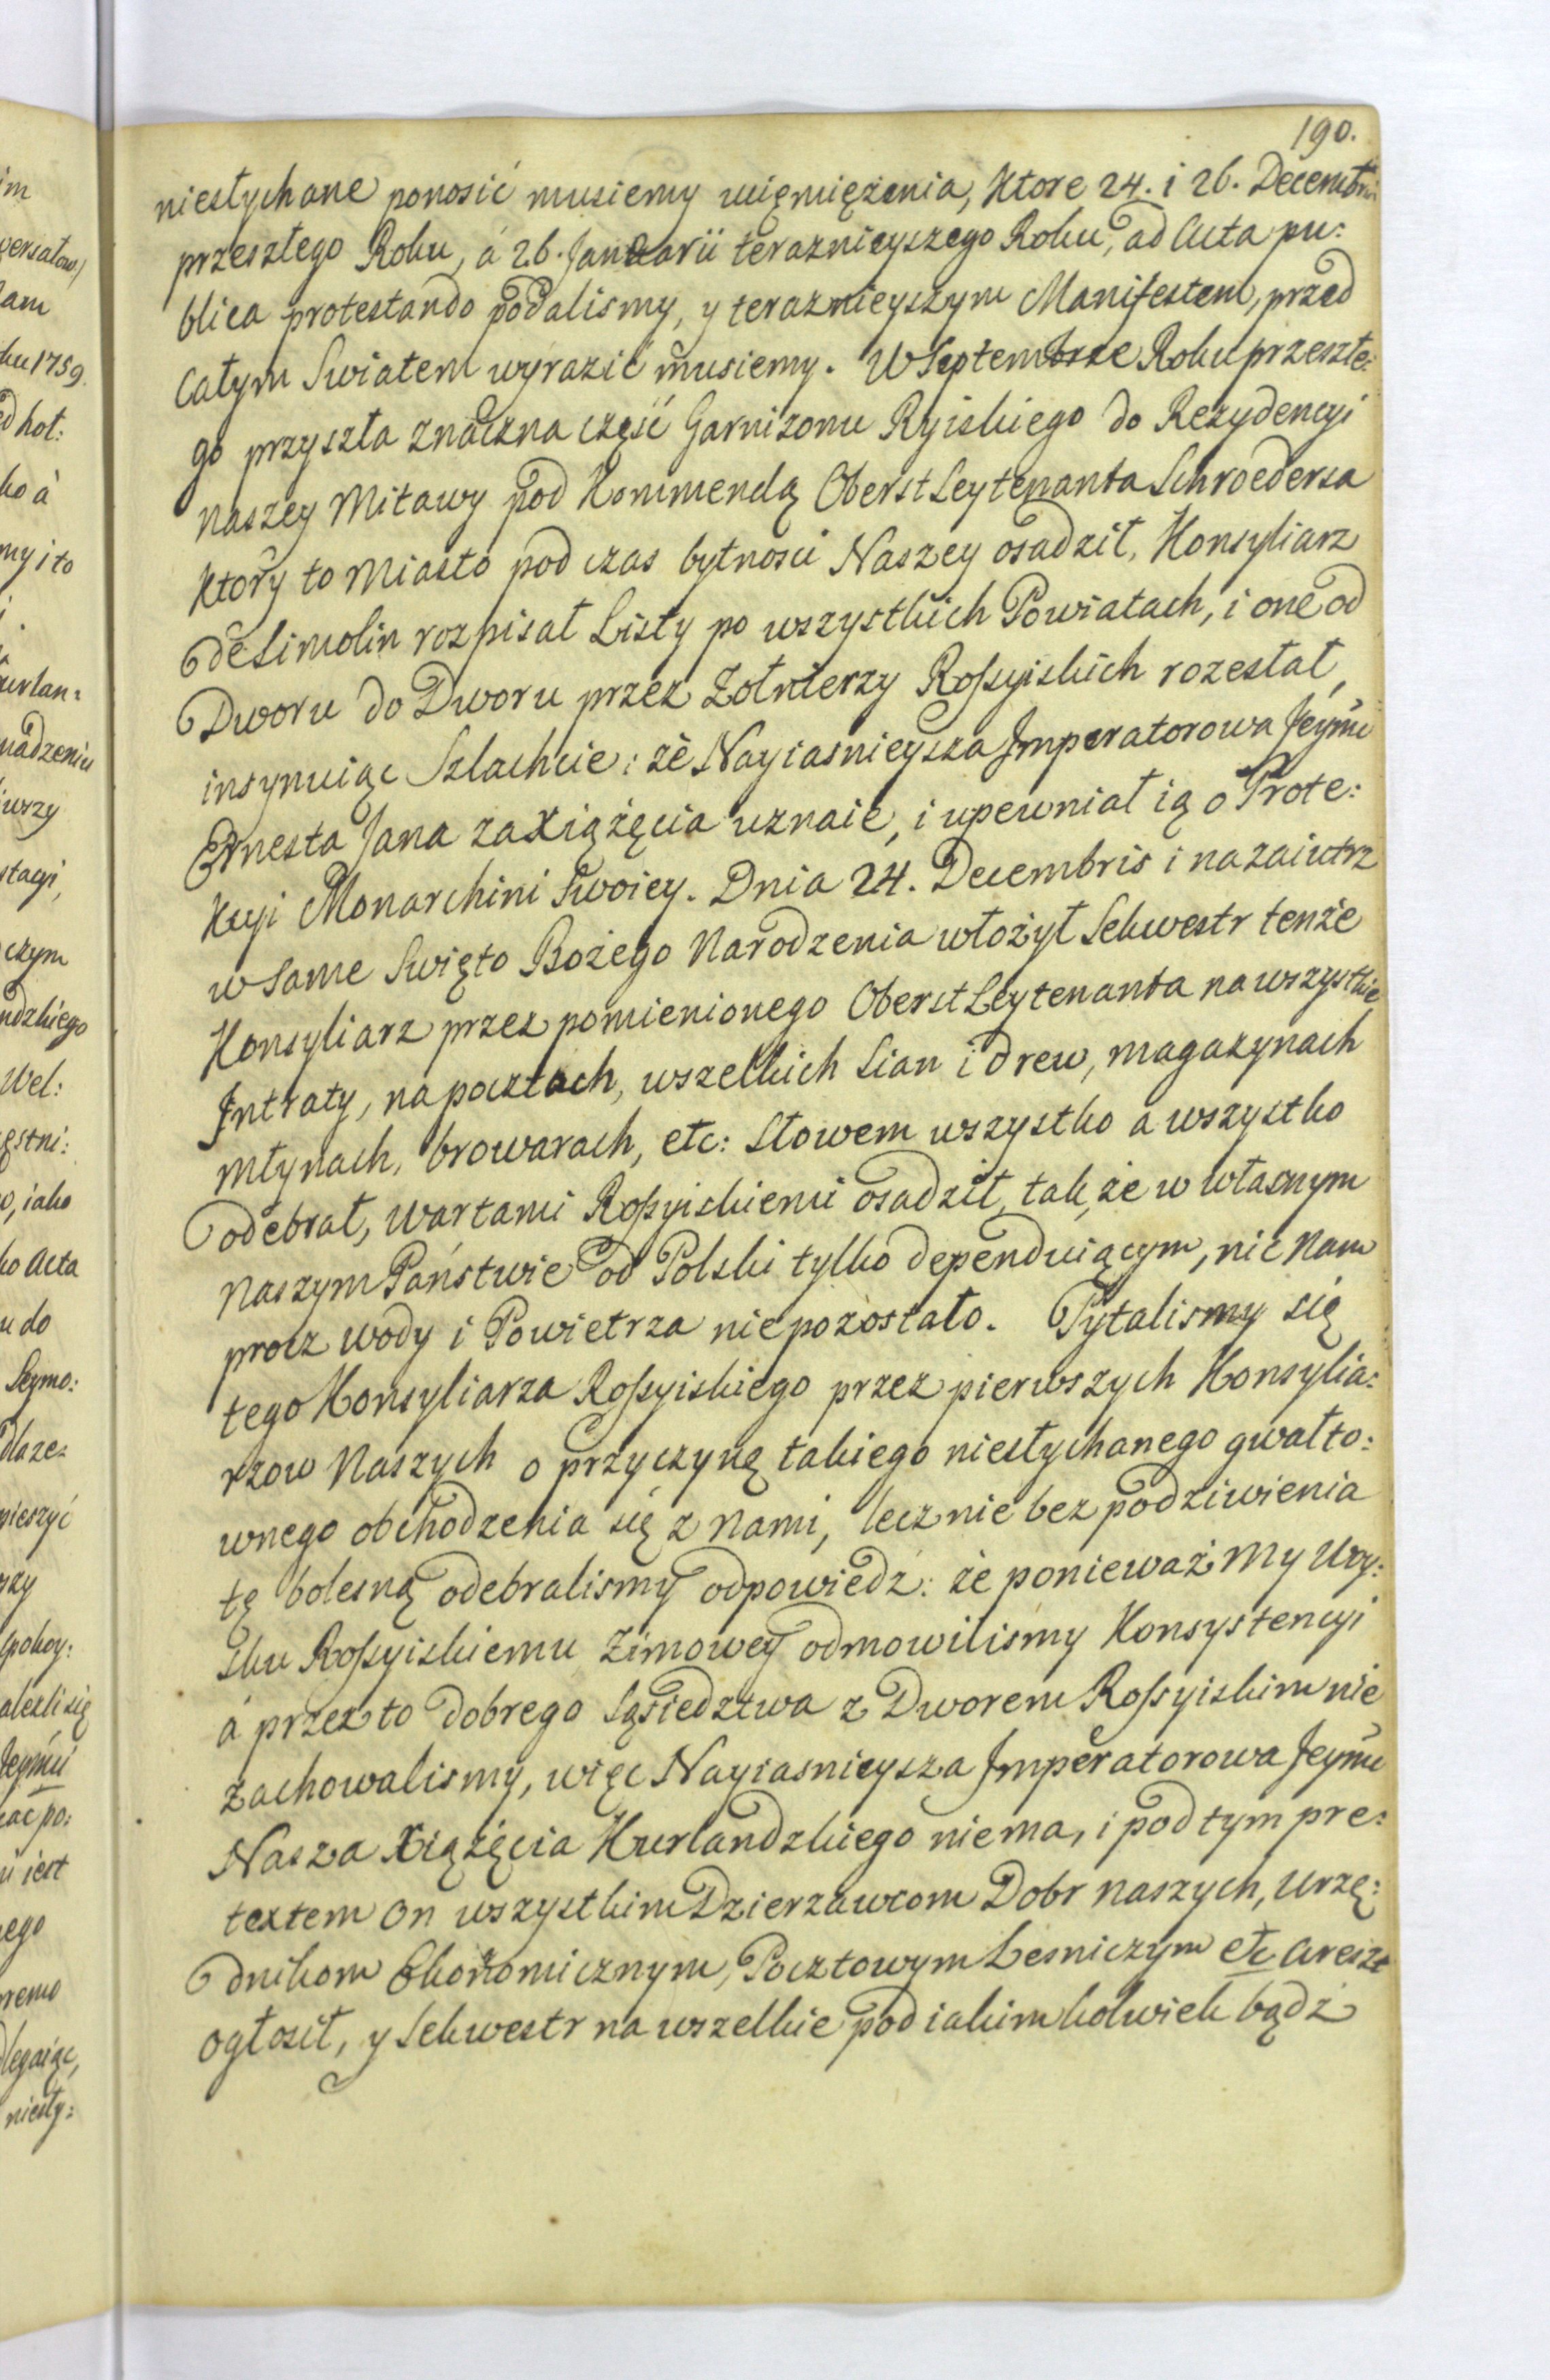 190.
niesłychane ponosić musiemy uciemiężenia, Ktore 24. i 26. Decembris
przeszłego Roku, á 26. Januarii teraznieyszego Roku, ad Acta pu:
blica protestando podalismy, y teraznieyszym Manifestem, przed
całym Swiatem wyrazić musiemy. W Septembrze Roku przeszłe:
go przyszła znaczna część Garnizonu Ryiskiego do Rezydencyi
naszey Mitawy pod Kommendą OberstLeytenanta Schroedersa
Ktory to Miasto pod czas bytnosci Naszey osadził, Konsyliarz
de Simolin rozpisał Listy po wszystkich Powiatach, i one od
Dworu do Dworu przez Zołnierzy Rossyiskich rozesłał,
insynuiąc Szlachcie: że Nayiasnieysza Imperatorowa Jeymć
Ernesta Jana za Xiążęcia uznaie, i upewniał ią o Prote:
kcyi Monarchini Swoiey. Dnia 24. Decembris i nazaiutrz
w same Swięto Bożego Narodzenia włożył Sekwestr tenże
Konsyliarz przez pomienionego OberstLeytenanta na wszystkie
Intraty, na pocztach, wszelkich Sian i drew, magazynach
młynach, browarach, etc: Słowem wszystko a wszystko
odebrał, wartami Rossyiskiemi osadził, tak, że w własnym
naszym Państwie od Polski tylko dependuiącym, nic nam
procz wody i Powietrza nie pozostało. Pytalismy się
tego Konsyliarza Rossyiskiego przez pierwszych Konsylia:
rzow Naszych o przyczynę takiego niesłychanego gwałto:
wnego obchodzenia się z nami, lecz nie bez podziwienia
tę bolesną odebralismy odpowiedź: że ponieważ My Woy:
sku Rossyiskiemu Zimowey odmowilismy Konsystencyi
á przez to dobrego Sąsiedztwa z Dworem Rossyiskim nie
zachowalismy, więc Nayiasnieysza Imperatorowa Jeymć
Nasza Xiążęcia Kurlandzkiego niema, i pod tym pre:
textem on wszystkim Dzierzawcom Dobr naszych, Urzę:
dnikom Ekonomicznym, Pocztowym Lesniczym etc Areszt
ogłosił, y Sekwestr na wszelkie pod iakimkolwiek bądź
im
ersałow/
am
ku 1759.
d hoł:
ko à
my i to
urlan:
adzeniu
urzy
stacyi,
czym
ndzkiego
Wel:
estni:
o, iako
ko Acta
u do
Seymo:
dla ze:
mieszyć
rzy
spokoy:
alezli się
Jeymći
ac po:
u iest
ego
remo
legaiąc,
niesły: